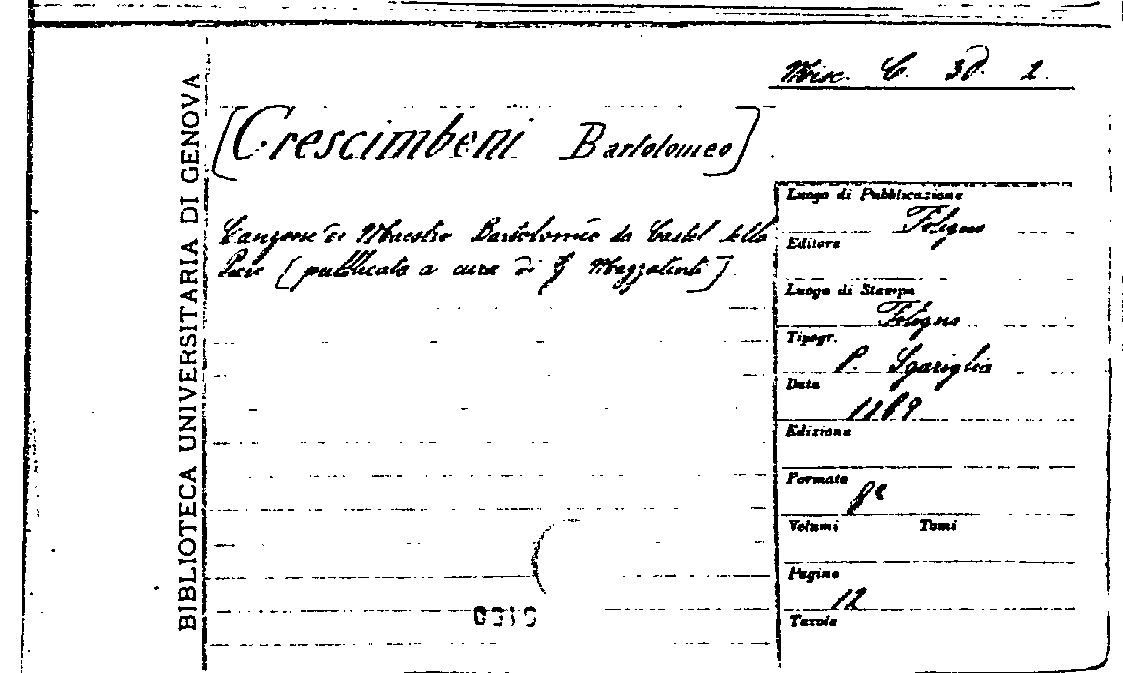 Misc. C. 38. 2.
BIBLIOTECA UNIVERSITARIA DI GENOVA
[Crescimbeni Bartolomeo]
Canzone di Maestro Bartolomeo da Castel della
Pieve [pubblicata a cura di G Mazzatinti]
Luogo di Pubblicazione
Foligno
Editore
Luogo di Stampa
Foligno
Tipogr.
P. Sgariglia
Data
Edizione
Formato
8°
Volumi Tomi
Pagine
12
Tavole